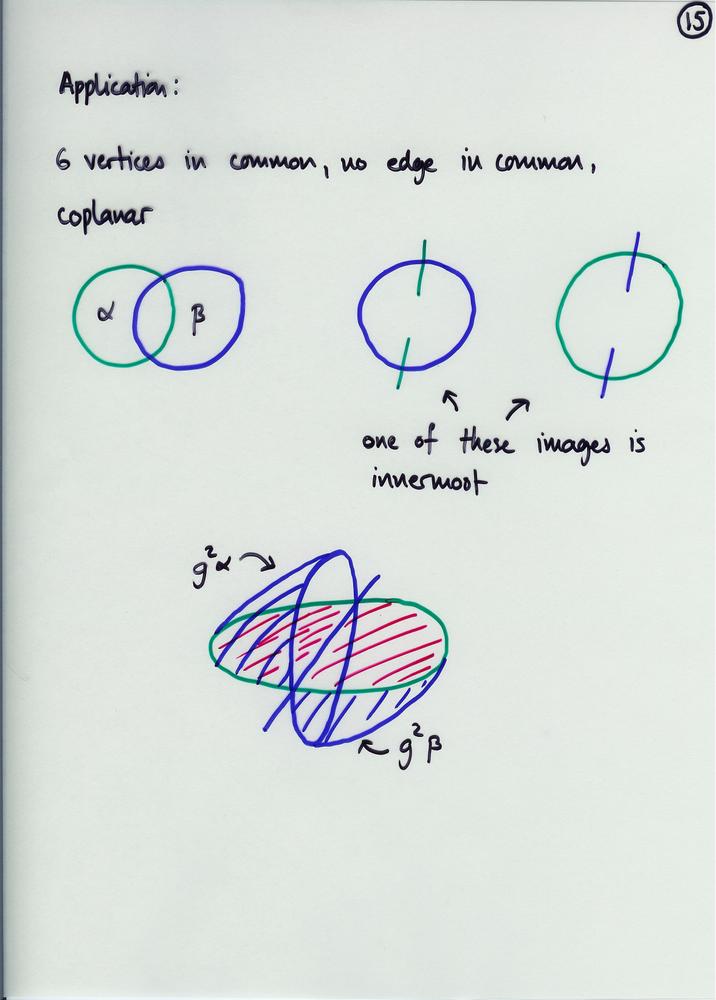 15
Application:
6 vertices in common, no edge in common,
coplanar
α β
one of these images is
innermost
g²α
g²β